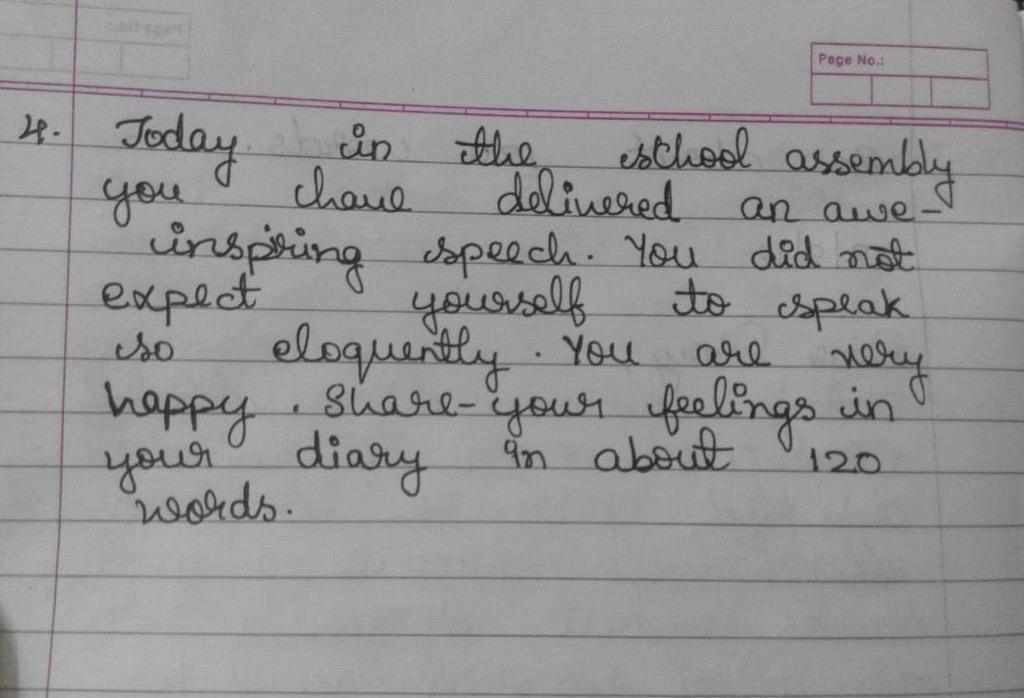 Page No.:
4. Today in the school assembly
you have delivered an awe-
inspiring speech. You did not
expect yourself to speak
so eloquently. You are very
happy. Share-your feelings in
your diary in about 120
words.